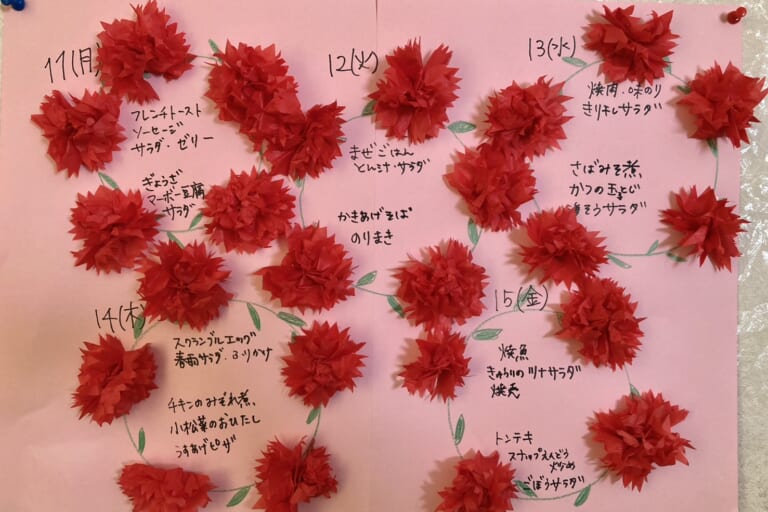 11(月)
フレンチトースト
ソーセージ
サラダ・ゼリー
ぎょうざ
マーボー豆腐
サラダ
12(火)
まぜごはん
とん汁・サラダ
かきあげそば
のりまき
13(水)
焼肉・味のり
きりぼしサラダ
さばみそ煮、
かつの玉とじ
そうサラダ
14(木)
スクランブルエッグ
春雨サラダ・ふりかけ
チキンのみぞれ煮、
小松菜のおひたし
うすあげピザ
15(金)
焼魚
きゅうりのツナサラダ
焼売
トンテキ
スナップえんどう
炒め
ごぼうサラダ